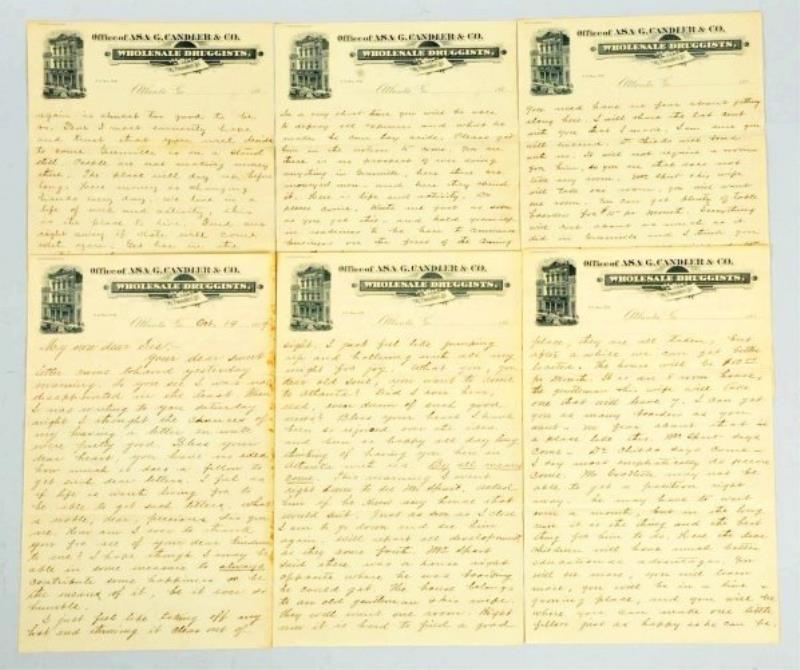 Office of ASA G. CANDLER & CO.
WHOLESALE DRUGGISTS,
Atlanta, Ga.
again is almost too good to be
so. Dear I most earnestly hope
and trust that you will decide
to come. Greenville is on a stand
still. People are not making money
there. The place will dry up before
long. Here money is changing
hands every day. We live in a
life of work and activity, this
is the place to live. Send me
right away if that will come
Office of ASA G. CANDLER & CO.
WHOLESALE DRUGGISTS,
Atlanta, Ga.
In a very short time you will be able
to defray all expenses and what is
made to come lay aside. Please get
him in the notion to come. You see
there is no prospect of ever doing
anything in Greenville, here there are
moneyed men. and here they spend
it. Here is life and activity. Do
please come. Write me just as soon
as you get this and hold yourself
in readiness to be here to commence
business on the first of the coming
Office of ASA G. CANDLER & CO.
WHOLESALE DRUGGISTS,
Atlanta, Ga.
You need have no fear about getting
along here. I will share the last cent
with you that I have. I am sure you
will succeed. Dr Chidds will board
with us. It will not require a room
for him, so you see that does not
take any room. Mr Short & his wife
will take one room, you will want
one room. You can get plenty of table
boarders for per month. Everything
will cost about as much as it
did in Greenville and I think you
Office of ASA G. CANDLER & CO.
WHOLESALE DRUGGISTS,
Atlanta, Ga. Oct. 19
My own dear Sis:-
Your dear sweet
letter came to hand yesterday
morning. So you see I was not
disappointed in the least. When
I was writing to you Saturday
night I thought the chances of
my having a letter in
were pretty good. Bless your
dear heart, you have no idea
how much it does a fellow to
get such dear letters. I feel as
if life is worth living for to
be able to get such letters. What
a noble, dear, precious Sis you
are. How am I ever to thank
you for all of your dear kindness
to me? I hope though I may be
able in some measure to always
contribute some happiness or be
the means of it, be it ever so
humble.
I just feel like taking off my
hat and throwing it clear out of
Office of ASA G. CANDLER & CO.
WHOLESALE DRUGGISTS,
Atlanta, Ga.
sight. I just feel like jumping
up and hollering with all my
might for joy. What you, you
dear old soul, you want to come
to Atlanta? Did I ever hear,
read, or even dream of such good
news? Bless your heart I have
been so rejoiced over the idea
and been so happy all day long
thinking of having you here in
Atlanta with us. By all means
come. This morning I went
right down to see Mr Short, asked
him if he knew any house that
would suit. Just as soon as I
I am to go down and see him
again. Will report all developments
as they come forth. Mr Short
said there was a house right
opposite where he was boarding
he could get. The house belongs
to an old gentleman & his wife.
they will want one room. Right
now it is hard to find a good
Office of ASA G. CANDLER & CO.
WHOLESALE DRUGGISTS,
Atlanta, Ga.
place, they are all taken, but
after a while we can get better
located. The house will be
per Month. It is an 8 room house,
the gentleman & his wife will take
one that will leave 7. I can get
you as many boarders as you
want. No fear about that in
a place like this. Mr Short says
come - Dr Chidds says come -
I say most emphatically do please
come. Mr may not be
able to get a position right
away. He may have to wait
even a month, but in the long
run it is the thing and the best
thing for him to do. Here the dear
children will have much better
educational advantages. You
will see more, you will learn
more, you will be in a live &
growing place, and you will be
where you can make one little
fellow just as happy as he can be.